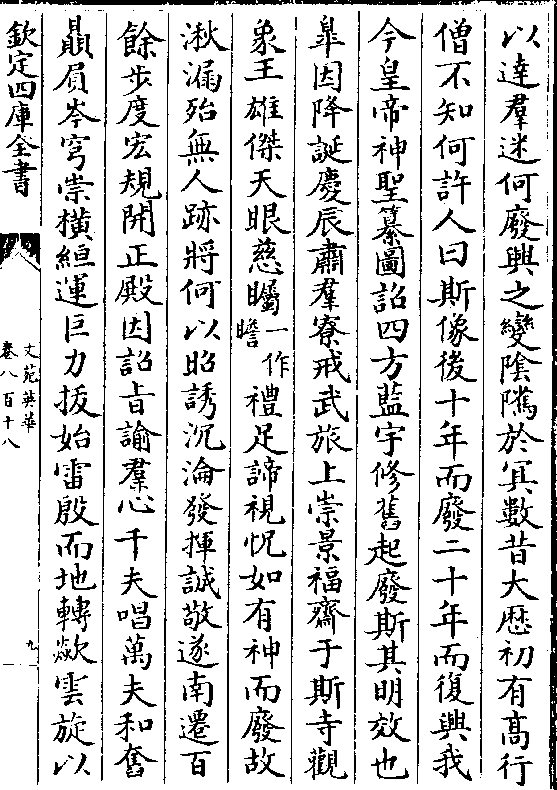 以達羣迷何廢興之變陰隲於冥數昔大歴初有高行
僧不知何許人曰斯像後十年而廢二十年而復興我
今皇帝神聖纂圖詔四方藍宇修舊起廢斯其明效也
皐因降誕慶辰肅羣寮戒武旅上崇景福齋于斯寺觀
象王雄傑天眼慈矚一作瞻禮足諦視怳如有神而廢故
湫漏殆無人跡將何以昭誘沉淪發揮誠敬遂南遷百
餘步度宏規開正殿因詔㫖諭羣心千夫唱萬夫和奮
贔屓岑穹崇橫絙運巨力拔始雷殷而地轉歘雲旋以
欽定四庫全書
文苑英華
卷八百十八
九